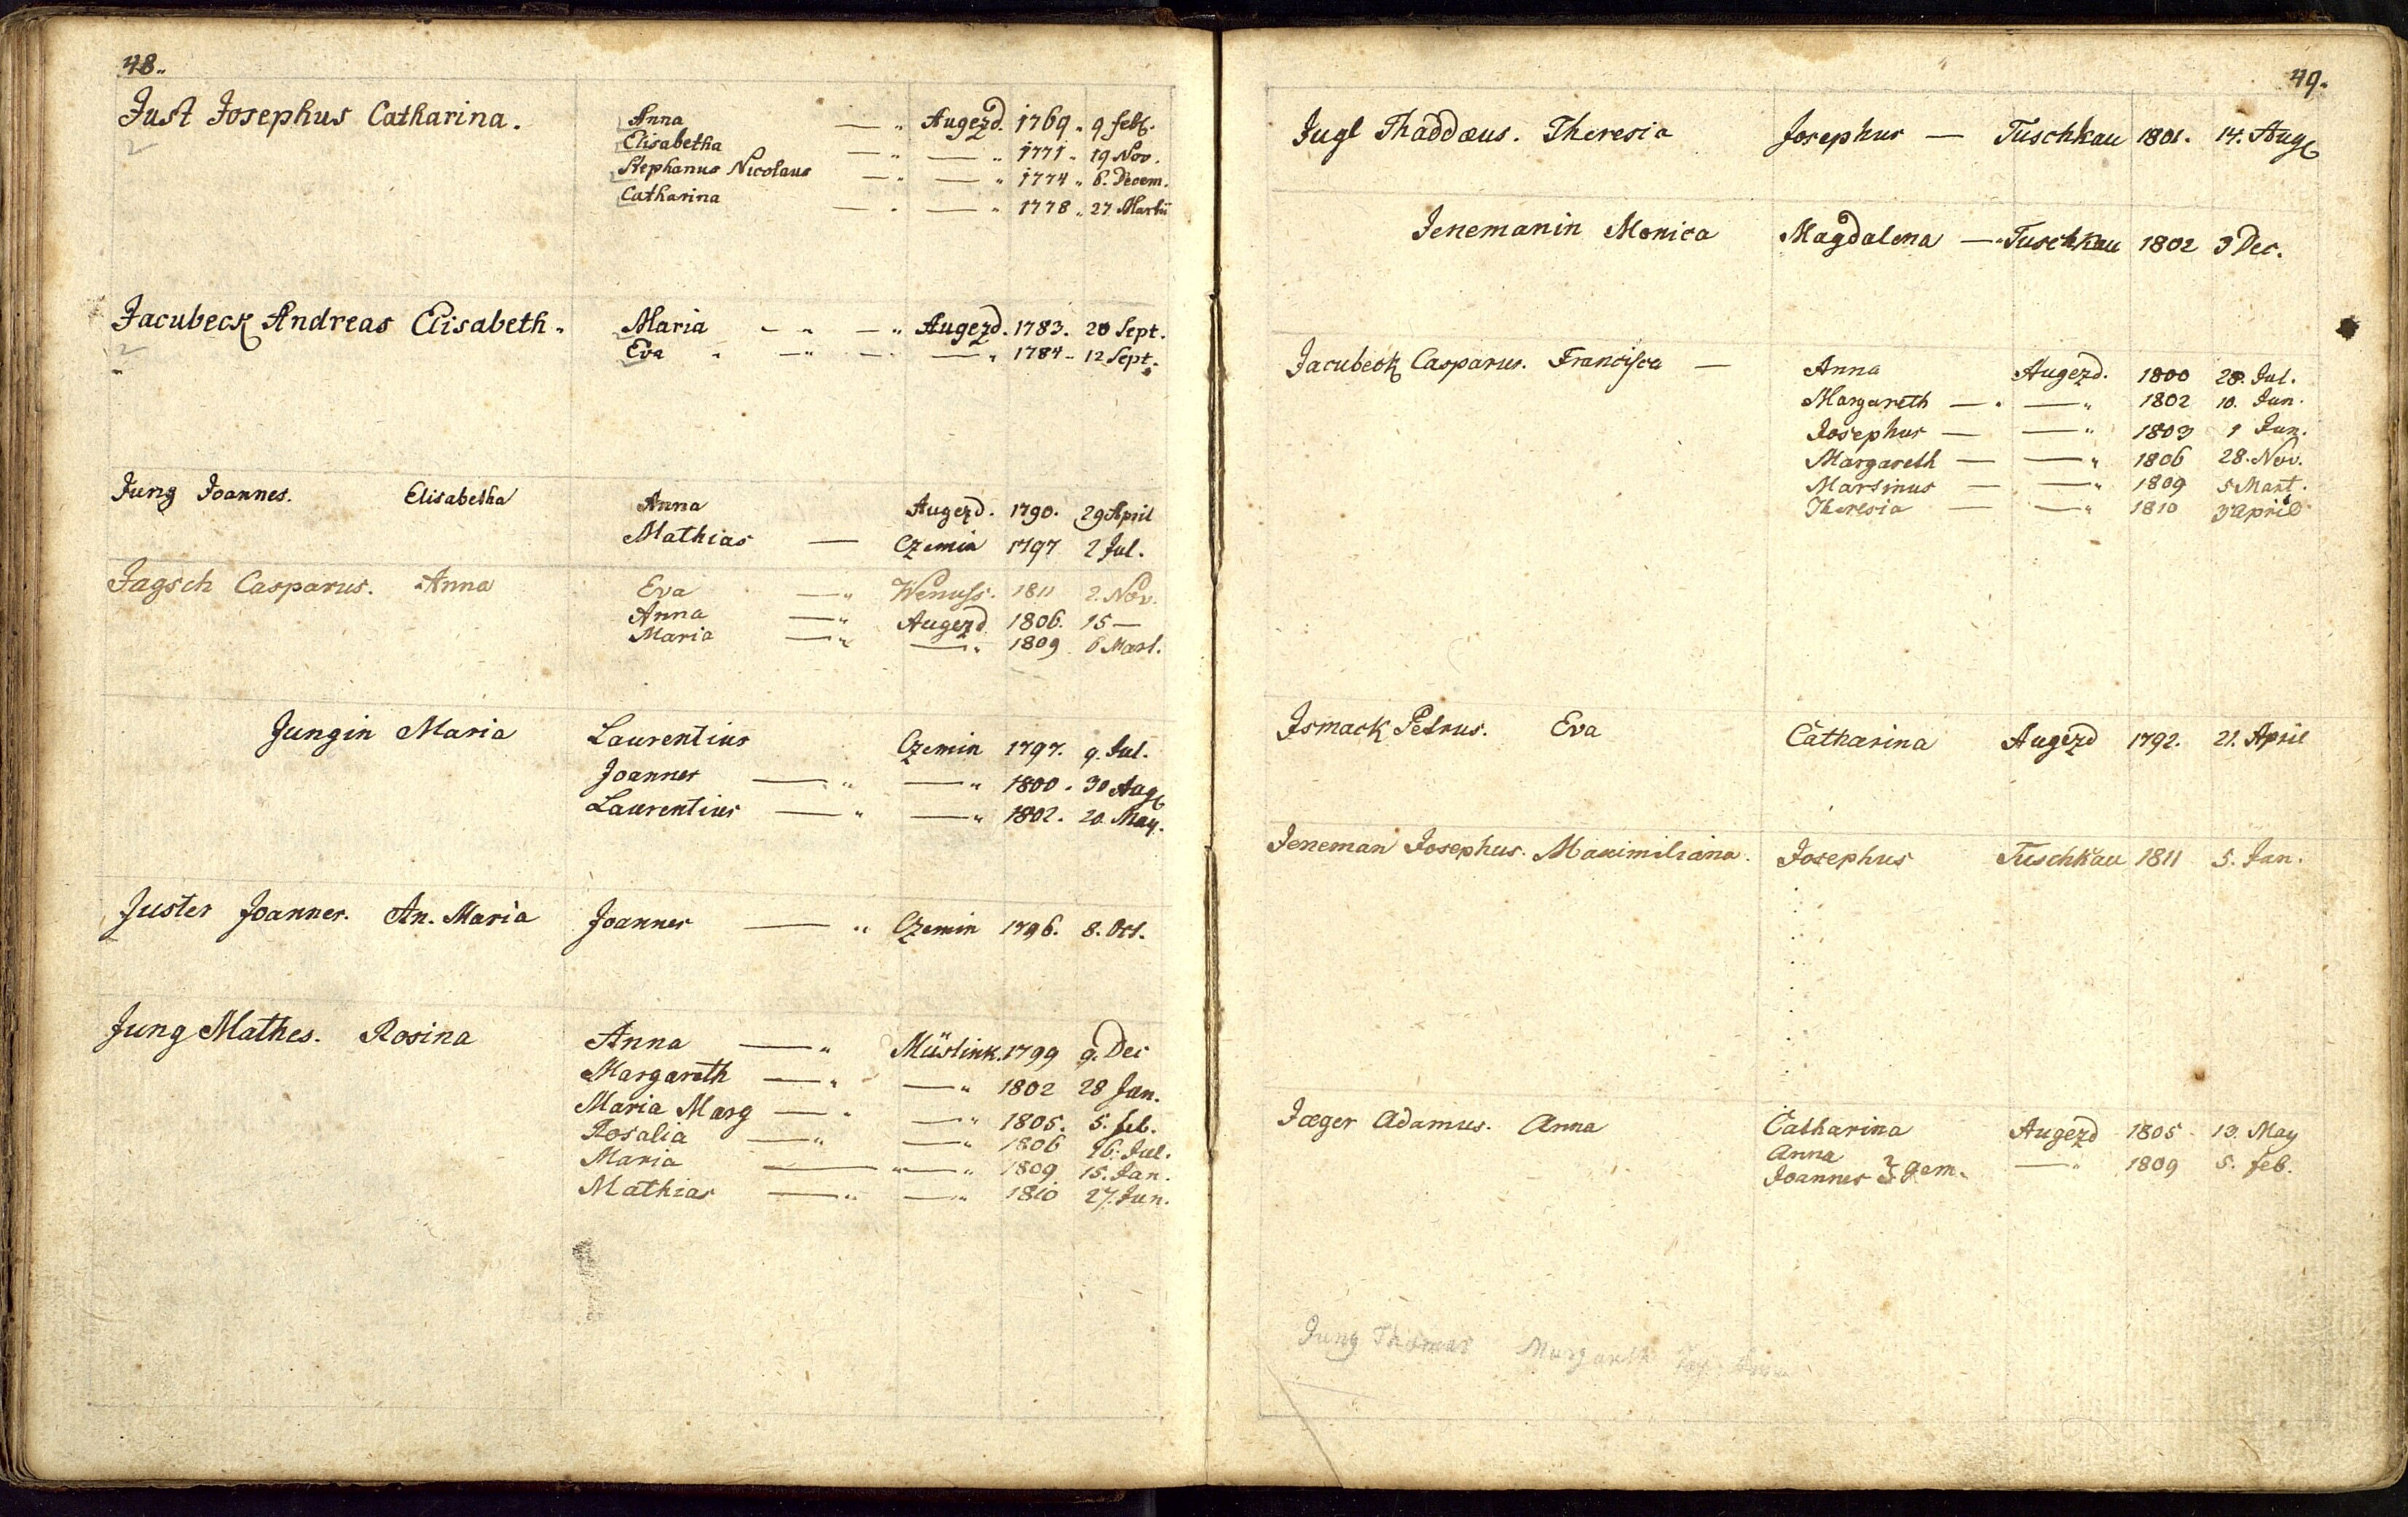 48.
Just Josephus Catharina. Anna — " Augezd. 1769 " 9 feb.
Elisabetha — " — " 1771 " 19 Nov.
Stephanus Nicolaus — " — " 1774 " 6. Decem.
Catharina — " — " 1778 " 27 Martii
Jacubeck Andreas Elisabeth. Maria - " — " Augezd. 1783. 20 Sept.
Eva " — " — " — " 1784 - 12 Sept.
Jung Joannes. Elisabetha Anna Augezd. 1790. 29 April
Mathias — Czemin 1797 2 Jul.
Jagsch Casparus. Anna Eva — " Wenuss. 1811 2. Nov.
Anna — " Augezd 1806. 15 —
Maria — " — " 1809 6 Mart.
Jungin Maria Laurentius Czemin 1797. 9. Jul.
Joannes — " — " 1800 . 30 Aug
Laurentius — " — " 1802. 20. May.
Juster Joannes. An. Maria Joannes — " Czemin 1796. 8. Oct.
Jung Mathes. Rosina Anna — " Müslink. 1799 9. Dec
Margareth — " — " 1802 28 Jan.
Maria Marg — " — " 1805. 5. feb.
Rosalia — " — " 1806 16. Jul.
Maria — " — " 1809 15. Jan.
Mathias — " — " 1810 27. Jun.
49.
Jugl Thaddæus. Theresia Josephus — Tuschkau 1801. 14. Aug
Jenemanin Monica Magdalena — " Tuschkau 1802 3 Dec.
Jacubeck Casparus. Francisca — Anna Augezd. 1800 28. Jul.
Margareth — " — " 1802 10. Jun.
Josephus — — " 1803 1 Jun.
Margareth — — " 1806 28. Nov.
Martinus — — " 1809 5 Mart.
Theresia — — " 1810 3 april
Jsmack Petrus. Eva Catharina Augezd 1792. 21. April
Jeneman Josephus. Maximiliana. Josephus Tuschkau 1811 5. Jan.
Jæger Adamus. Anna Catharina Augezd 1805 13. May
Anna
Joannes } gem. — " 1809 5. feb.
Jung Thomas Margareth